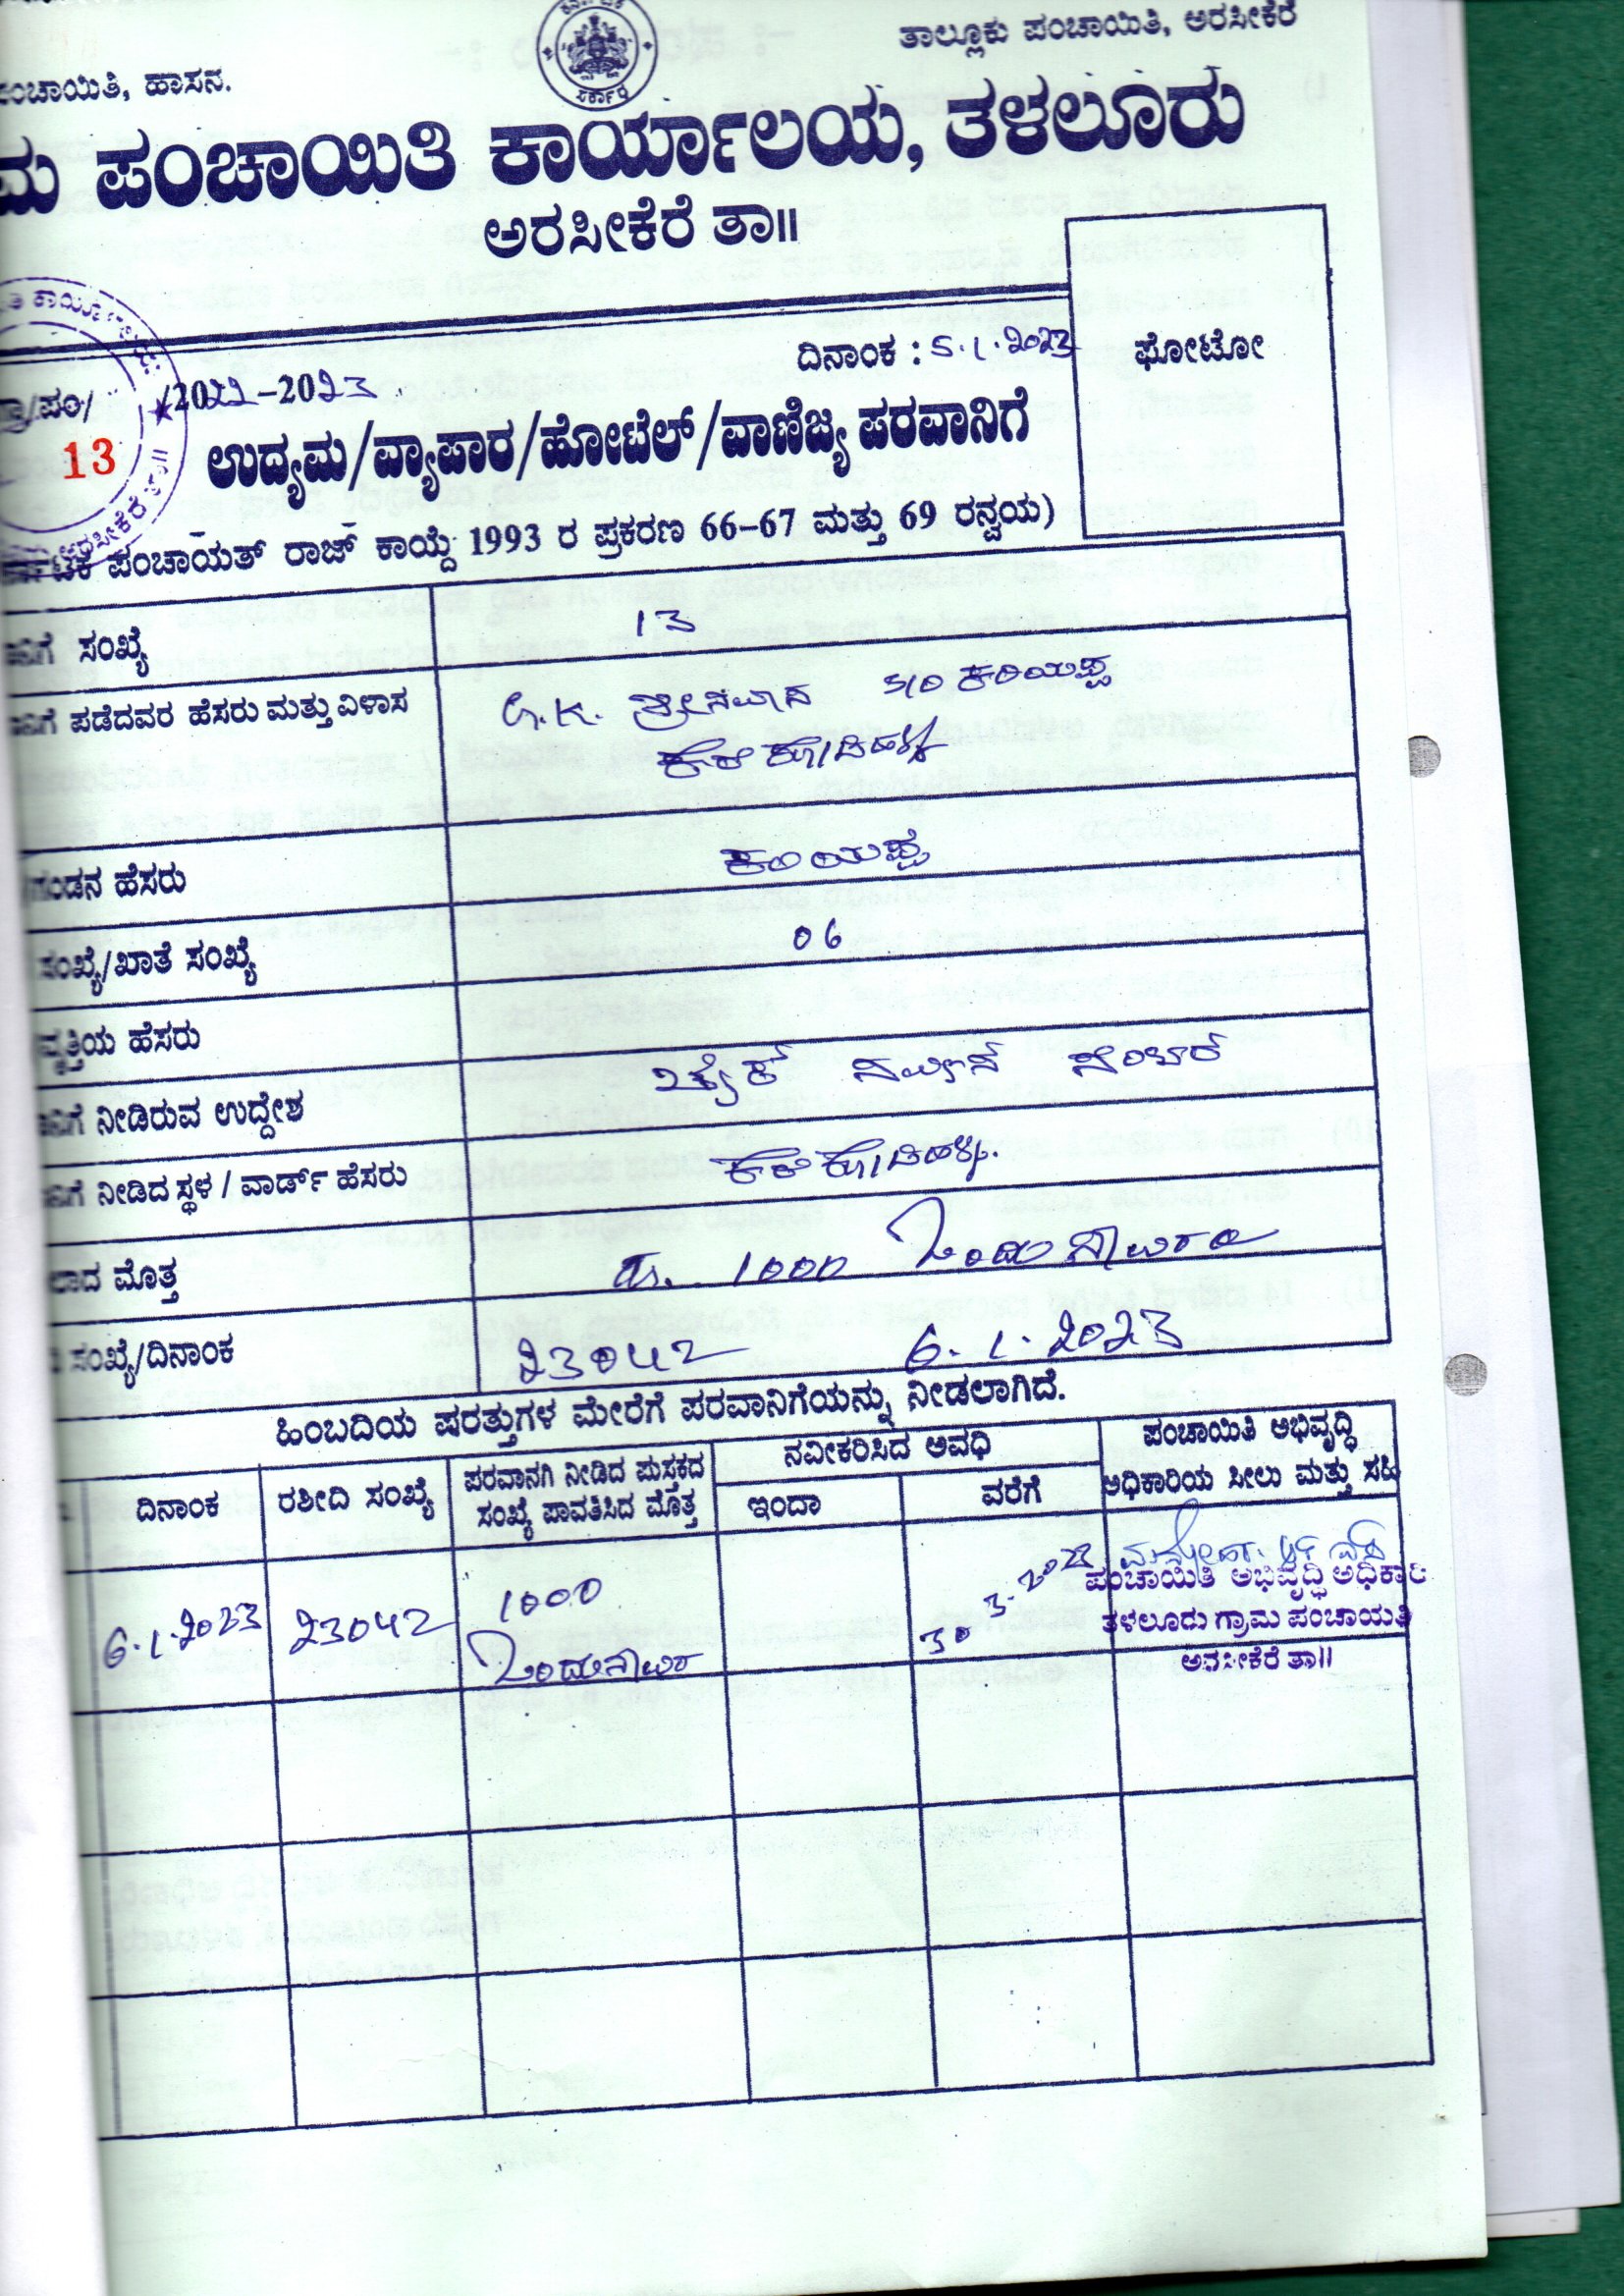 ತಾಲ್ಲೂಕು ಪಂಚಾಯಿತಿ, ಅರಸೀಕೆರೆ
ಪಂಚಾಯಿತಿ, ಹಾಸನ.
ಸರ್ಕಾರ
ಮ ಪಂಚಾಯಿತಿ ಕಾರ್ಯಾಲಯ, ತಳಲೂರು
ಅರಸೀಕೆರೆ ತಾ॥
ಫೋಟೋ
ದಿನಾಂಕ : 5.1.2023
ಗ್ರಾ/ಪಂ/ /2022-2023
13
ಉದ್ಯಮ/ವ್ಯಾಪಾರ/ಹೋಟೆಲ್/ವಾಣಿಜ್ಯ ಪರವಾನಿಗೆ
ಪಂಚಾಯತ್ ರಾಜ್ ಕಾಯ್ದೆ 1993 ರ ಪ್ರಕರಣ 66-67 ಮತ್ತು 69 ರನ್ವಯ)
ನಿಗೆ ಸಂಖ್ಯೆ 13
ನಿಗೆ ಪಡೆದವರ ಹೆಸರು ಮತ್ತು ವಿಳಾಸ G.K. ಶ್ರೀನಿವಾಸ S/O ಕರಿಯಪ್ಪ
/ಗಂಡನ ಹೆಸರು ಕರಿಯಪ್ಪ
ಸಂಖ್ಯೆ/ಖಾತೆ ಸಂಖ್ಯೆ 06
ವೃತ್ತಿಯ ಹೆಸರು
ನಿಗೆ ನೀಡಿರುವ ಉದ್ದೇಶ ಬೈಕ್
ನಿಗೆ ನೀಡಿದ ಸ್ಥಳ / ವಾರ್ಡ್ ಹೆಸರು
ಲಾದ ಮೊತ್ತ ರೂ. 1000 ಒಂದು ಸಾವಿರ
ಸಂಖ್ಯೆ/ದಿನಾಂಕ 23042 6.1.2023
ಹಿಂಬದಿಯ ಷರತ್ತುಗಳ ಮೇರೆಗೆ ಪರವಾನಿಗೆಯನ್ನು ನೀಡಲಾಗಿದೆ.
ದಿನಾಂಕ
ರಶೀದಿ ಸಂಖ್ಯೆ
ಪರವಾನಗಿ ನೀಡಿದ ಪುಸ್ತಕದ
ಸಂಖ್ಯೆ ಪಾವತಿಸಿದ ಮೊತ್ತ
ನವೀಕರಿಸಿದ ಅವಧಿ
ಇಂದಾ
ವರೆಗೆ
ಪಂಚಾಯಿತಿ ಅಭಿವೃದ್ಧಿ
ಅಧಿಕಾರಿಯ ಸೀಲು ಮತ್ತು ಸಹಿ
6.1.2023
23042
1000
ಒಂದು ಸಾವಿರ
ಪಂಚಾಯಿತಿ ಅಭಿವೃದ್ಧಿ ಅಧಿಕಾರಿ
ತಳಲೂರು ಗ್ರಾಮ ಪಂಚಾಯತಿ
ಅರಸೀಕೆರೆ ತಾ॥